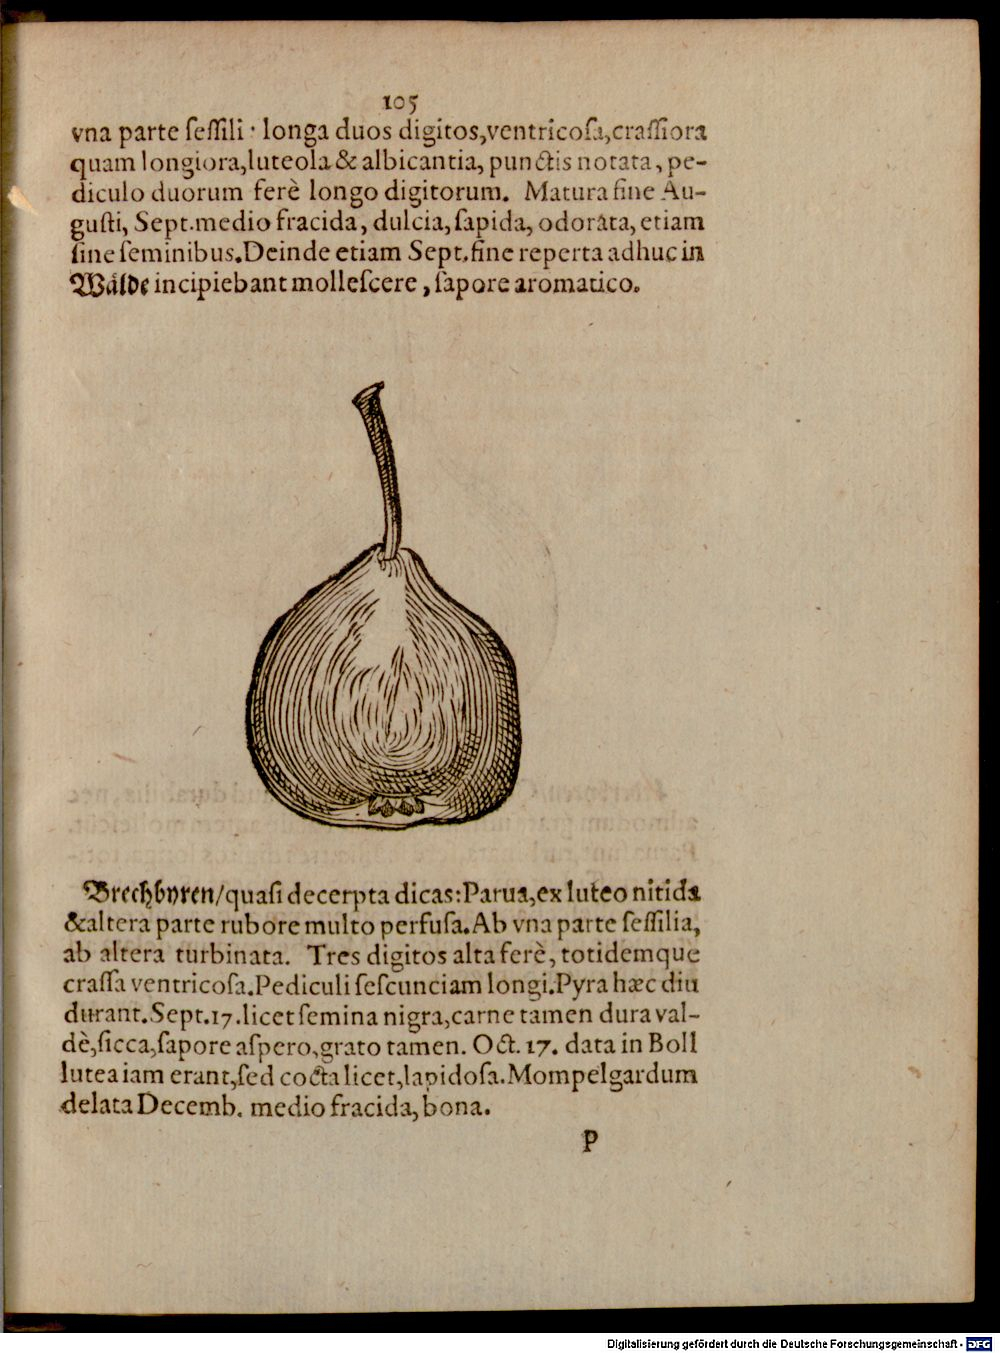 105
vna parte ſeſſili : longa duos digitos,ventricoſa,craſſiora
quam longiora,luteola & albicantia, punctis notata, pe-
diculo duorum ferè longo digitorum. Matura fine Au-
guſti, Sept.medio fracida, dulcia, ſapida, odorata, etiam
ſine ſeminibus.Deinde etiam Sept.fine reperta adhuc in
Wälde incipiebant molleſcere, ſapore aromatico.
Brechbyren/quaſi decerpta dicas:Parua,ex luteo nitida
& altera parte rubore multo perfuſa.Ab vna parte ſeſſilia,
ab altera turbinata. Tres digitos alta ferè, totidemque
craſſa ventricoſa.Pediculi ſeſcunciam longi.Pyra hæc diu
durant.Sept.17.licet ſemina nigra,carne tamen dura val-
dè,ſicca,ſapore aſpero,grato tamen. Oct. 17. data in Boll
lutea iam erant,ſed cocta licet,lapidoſa.Mompelgardum
delata Decemb. medio fracida, bona.
P
Digitalisierung gefördert durch die Deutsche Forschungsgemeinschaft - DFG